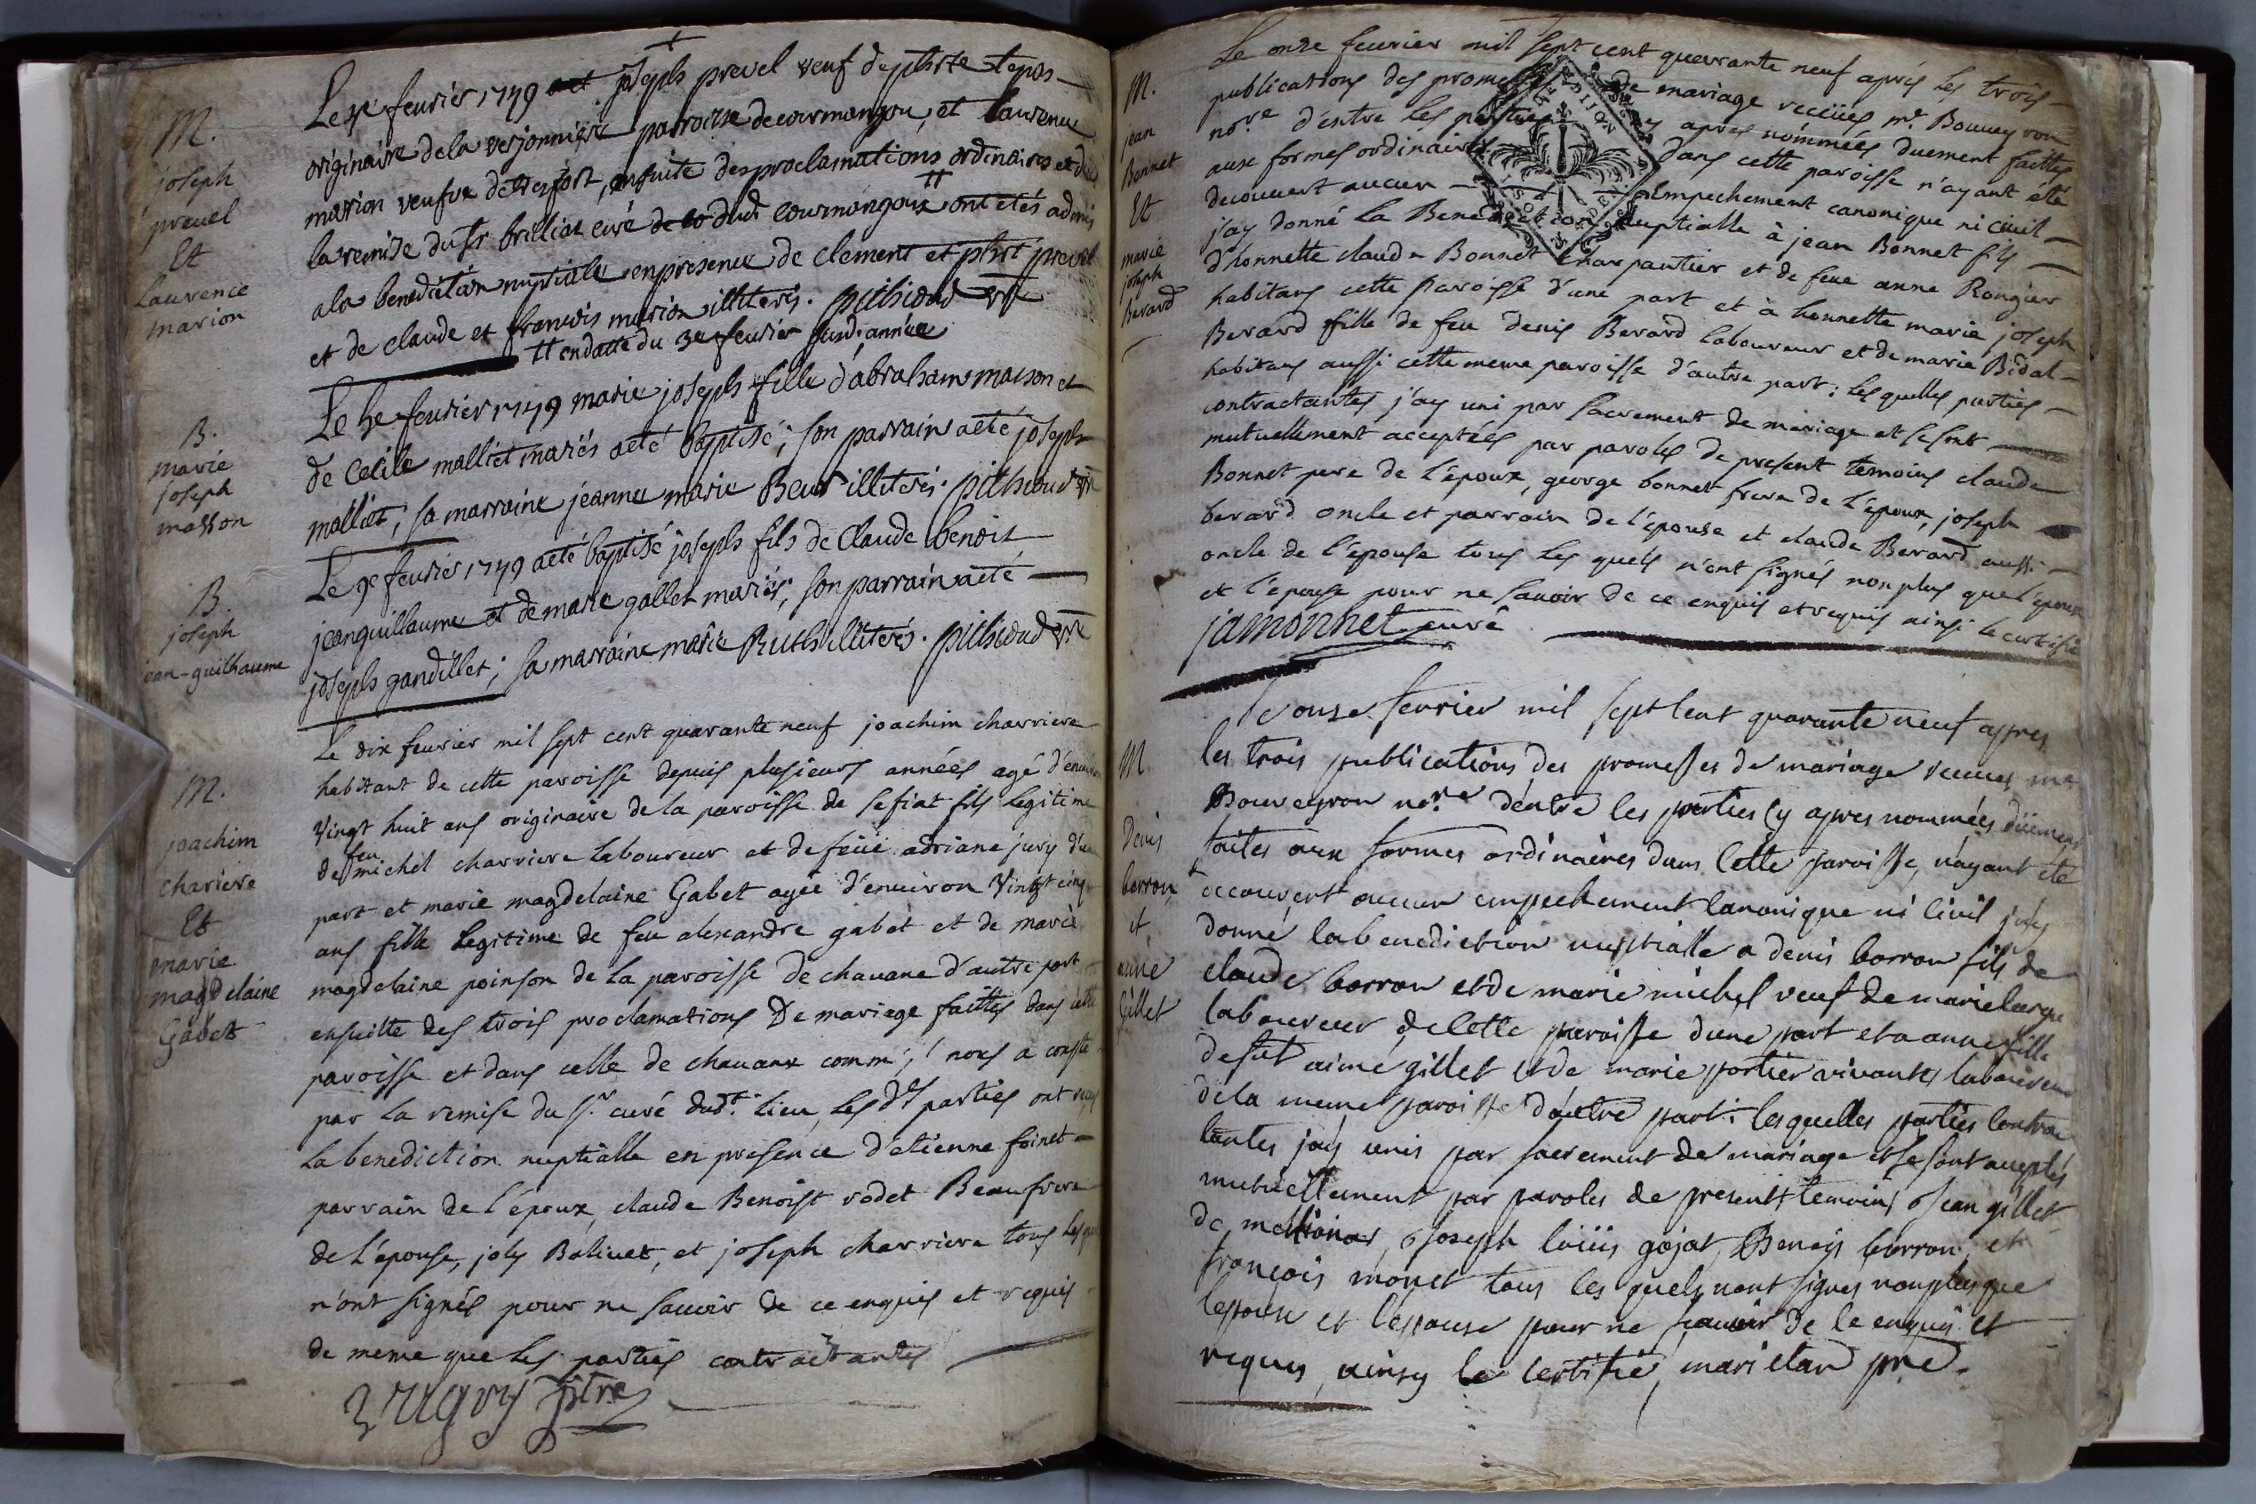 M.
joseph
prevel
Et
Laurence
marion
Le xe feurier 1749 joseph prevel veuf de
originaire de la verjonniere parroisse de courmangou, et laurence
marion veufve de tresfort, ensuite des proclamations ordinaires et de
la remise du sr brilliat curé dud courmangoux tt ont étés admis
a la benediction nuptiale en presence de clement et prevel
et de claude et francois marion illiterés. pithioud vre
tt en datte du 3e feurier susd. année
B.
marie
joseph
masson
Le feurier 1749 marie joseph fille d'abraham masson et
de Cecile malliet mariés a eté baptisé; son parrain a eté joseph
malliet; sa marraine jeanne marie Beus illiterés. pithioud vre
B.
joseph
jean-guilhaume
Le feurier 1749 a eté baptisé joseph fils de Claude benoit
jeanguillaume et de marie gallet mariés; son parrain a eté
joseph gandillet; sa marraine marie Ruth illiterés. pithioud vre
M.
joachim
chariere
Et
marie
magdelaine
Gabet
Le dix feurier mil sept cent quarante neuf joachim charriere
habitant de cette paroisse depuis plusieurs années agé d'environ
vingt huit ans originaire de la paroisse de sefiat fils legitime
de feu michel charriere laboureur et de feüe adriane jury d'une
part et marie magdelaine Gabet agée d'environ vingt cinq
ans fille legitime de feu alexandre gabet et de marie
magdelaine poinson de la paroisse de chavane d'autre part
ensuitte des trois proclamations De mariage faittes dans cette
paroisse et dans celle de chavanx comm' il nous a consté
par la remise du sr. curé dudt. lieu, les dt parties ont reçu
la benediction nuptialle en presence d'etienne foinet
parrain de l'époux, claude Benoist rodet Beaufrere
de l'épouse, joly Bolivet, et joseph charriere tous lesquels
n'ont signés pour ne savoir de ce enquis et requis
de meme que les parties contractantes
ptre
M.
jean
Bonnet
Et
marie
joseph
Berard
Le onze feurier mil sept cent quarante neuf après les trois
publications des promesses de mariage recües me. Bouueyron
nore. d'entre les parties cy apres nommées duement faittes
aux formes ordinaires dans cette paroisse n'ayant été
decouvert aucun empechement canonique ni civil
j'ay donné la Benediction nuptialle à jean Bonnet fils
d'honnette claude Bonnet charpantier et de feue anne Rongier
habitans cette paroisse d'une part et à honnette marie joseph
Berard fille de feu denis Berard laboureur et de marie Bidal
habitans aussi cette meme paroisse d'autre part; les quelles parties
contractantes j'ay uni par sacrement de mariage et se sont
mutuellement acceptées par paroles de present temoins claude
Bonnet pere de l'époux, george bonnet frere de l'époux, joseph
berard oncle et parrain de l'épouse et claude Berard aussi
oncle de l'épouse tous les quels n'ont signés non plus que l'époux
et l'épouse pour ne savoir de ce enquis et requis ainsi le certifie
jamonnet curé
M
Denis
borron
et
anne
Gillet
le onze fevrier mil sept cent quarante neuf apres
les trois publications des promesses de mariage recues me
Bouveyron nore. dentre les parties cy apres nommées düement
faites aux formes ordinaires dans cette paroisse, n'ayant eté
decouvert aucun empechement canonique ni civil j'ay
donné la benediction nuptialle a denis borron fils de
claude borron et de marie michel veuf de marie
laboureur de cette paroisse d'une part et a anne fille
defût aimé gillet et de marie portier vivante laboureur
de la meme paroisse d'autre part: lesquelles parties contrac
tantes j'ay unis par sacrement de mariage et se sont acceptés
mutuellement par paroles de present temoins jean gillet
de, joseph loüis gojat, Benois borron, et
françois monet tous les quels nont signés nonplus que
lepoux et l'epouse pour ne scavoir de ce enquis et
requis, ainsy le certifie, marietan pre.